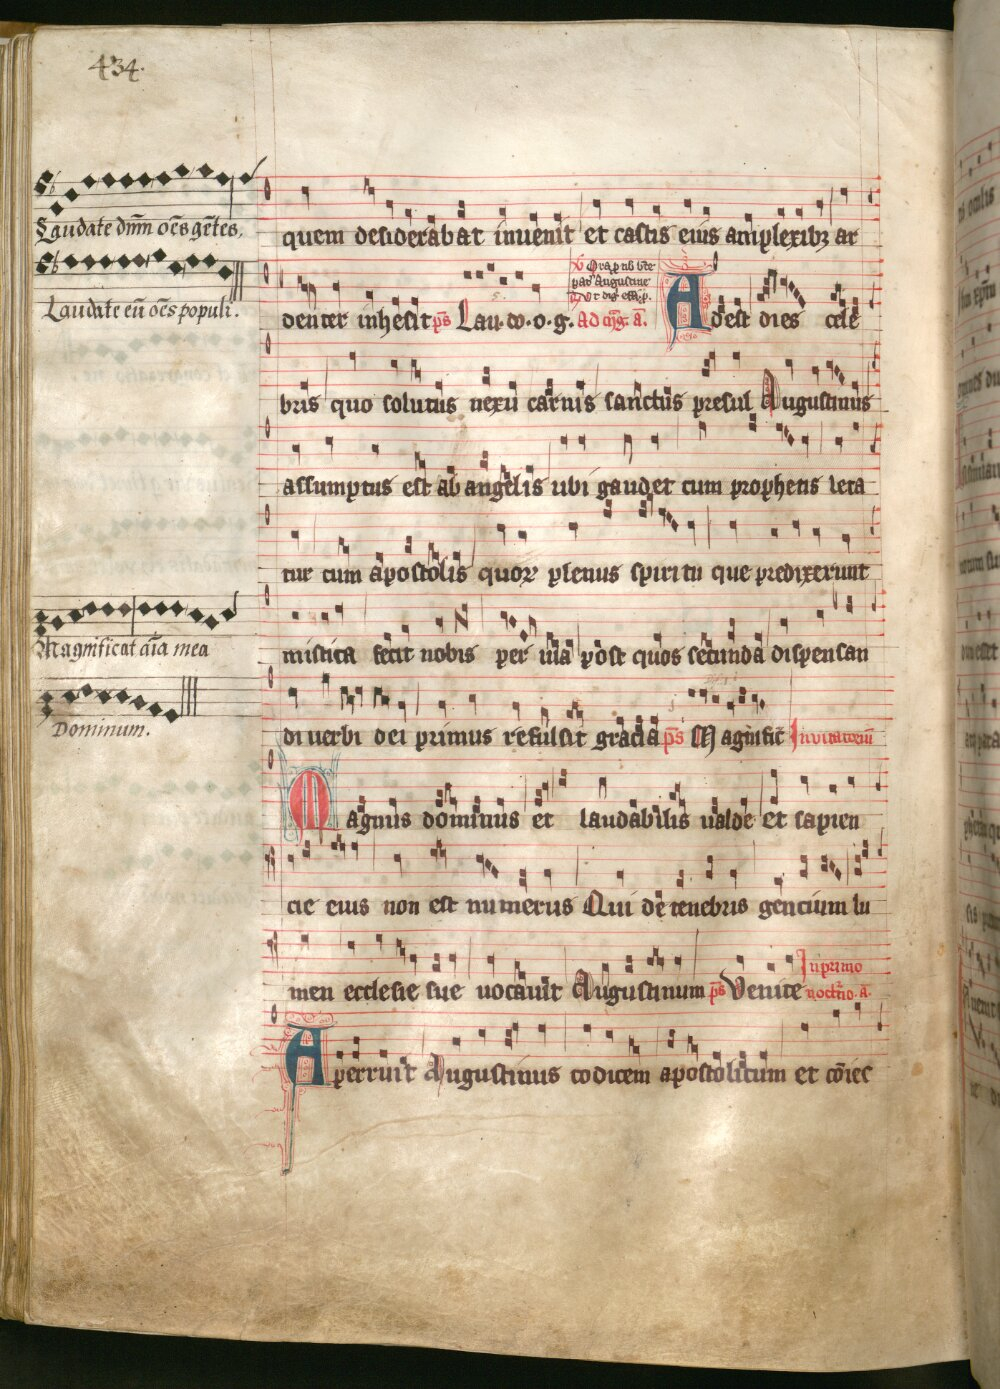 434.
Laudate dm̄m oēs gētes,
Laudate eū oēs populi.
Magnificat aīa mea
Dominum.
quem desiderabat inuenit et castis eius amplexibꝫ ar
ꝟ Ora ꝓ nob bt̄e
pat̄ Augustine
denter inhesit pꝰs Lau. do. o. g. Ad mꝗ. ā. Adest dies cele
bris quo solutus nexu carnis sanctus presul Augustinus
assumptus est ab angelis ubi gaudet cum prophetis leta
tur cum apostolis quoꝝ plenus spiritu que predixerunt
mistica fecit nobis peruia post quos secunda dispensan
di uerbi dei primus refulsit gracia p̄s Magnificat Inuitatoriū
Magnus dominus et laudabilis ualde et sapien
cie eius non est numerus Qui de tenebris gencium lu
men ecclesie sue uocauit Augustinum p̄s Venite In primo
nocto. ā.
Aperruit Augustinus codicem apostolicum et cōiec